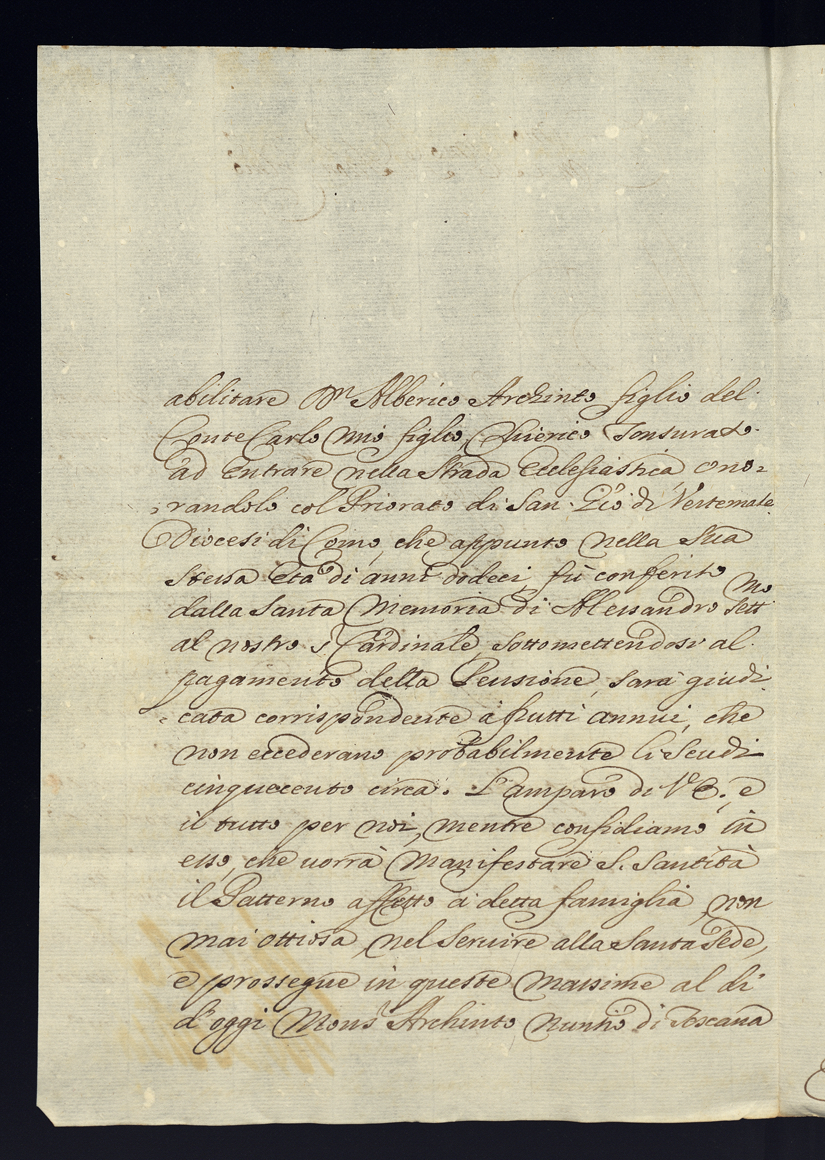 abilitare Dn Alberico Archinto figlio del
Conte Carlo mio figlio, Chierico Tonsurato
ad entrare nella Strada Ecclesiastica, ono=
randolo col Priorato di San Gio di Vertemate
Diocesi di Como, che appunto nella sua
stessa età di anni dodeci, fù conferito
dalla Santa Memoria di Alessandro Settmo
al nostro Sr Cardinale, sottomettendosi al
pagamento della Pensione, sarà giudi
cata corrispondente à frutti annui, che
non eccederano probabilmente li Scudi
cinquecento circa. L'amparo di V. E., e
il tutto per noi, mentre confidiamo in
esso, che vorrà manifestare S. Santità
il Patterno affetto à detta famiglia, non
mai ottiosa nel servire alla Santa Sede,
e prossegue in queste massime al di
d'oggi Monsr Archinto Nuntio di Toscana